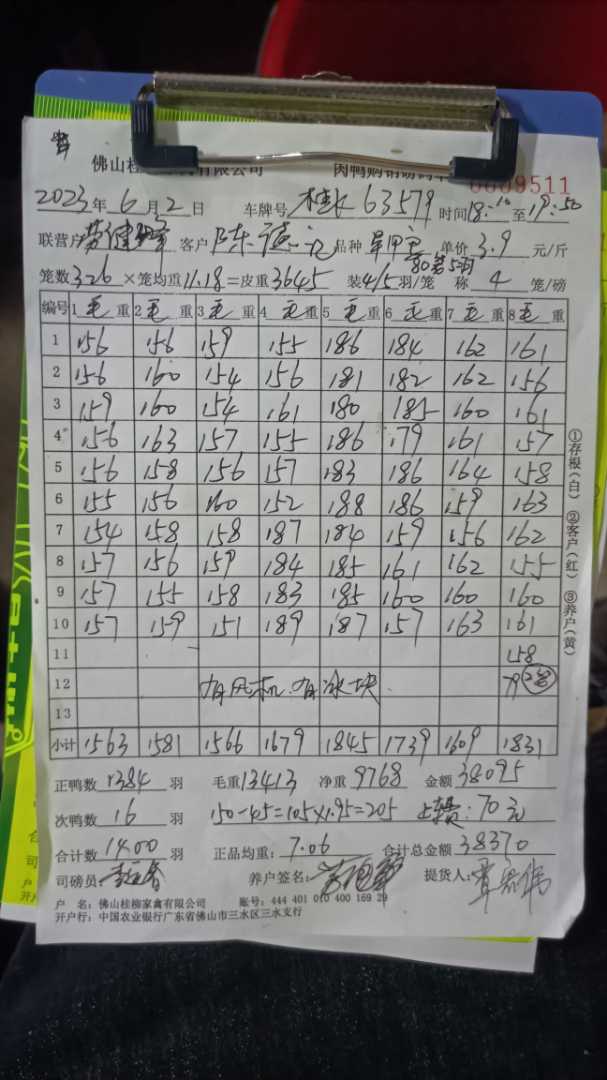 佛山桂 有限公司
0009511
2023年6月2日 车牌号 桂K63579 时间18:10至19:50
联营户 客户 陈 记 品种 单价3.9元/斤
80装5羽
笼数326×笼均重11.18=皮重3645 装4/5羽/笼 称4笼/磅
编号 1毛重 2毛重 3毛重 4毛重 5毛重 6毛重 7毛重 8毛重
1 156 156 159 155 186 184 162 161
2 156 160 154 156 181 182 162 156
3 159 160 154 161 180 185 160 161
4 156 163 157 155 186 179 161 157
5 156 158 156 157 183 186 164 158
6 155 156 160 152 188 186 159 163
7 154 158 158 187 184 159 156 162
8 157 156 159 184 185 161 162 155
9 157 155 158 183 185 160 160 160
10 157 159 151 189 187 157 163 161
11 158
12 有风机.有冰块. 79
13
小计 1563 1581 1566 1679 1845 1739 1609 1831
正鸭数1384羽 毛重13413 净重9768 金额38095
次鸭数16羽 150-45=105×1.95=205 上车费:70元
合计数1400羽 正品均重:7.06 合计总金额38370
司磅员: 养户签名: 提货人:
户 名:佛山桂柳家禽有限公司 账号:444 401 010 400 169 29
开户行:中国农业银行广东省佛山市三水区三水支行
①存根(白) ②客户(红) ③养户(黄)